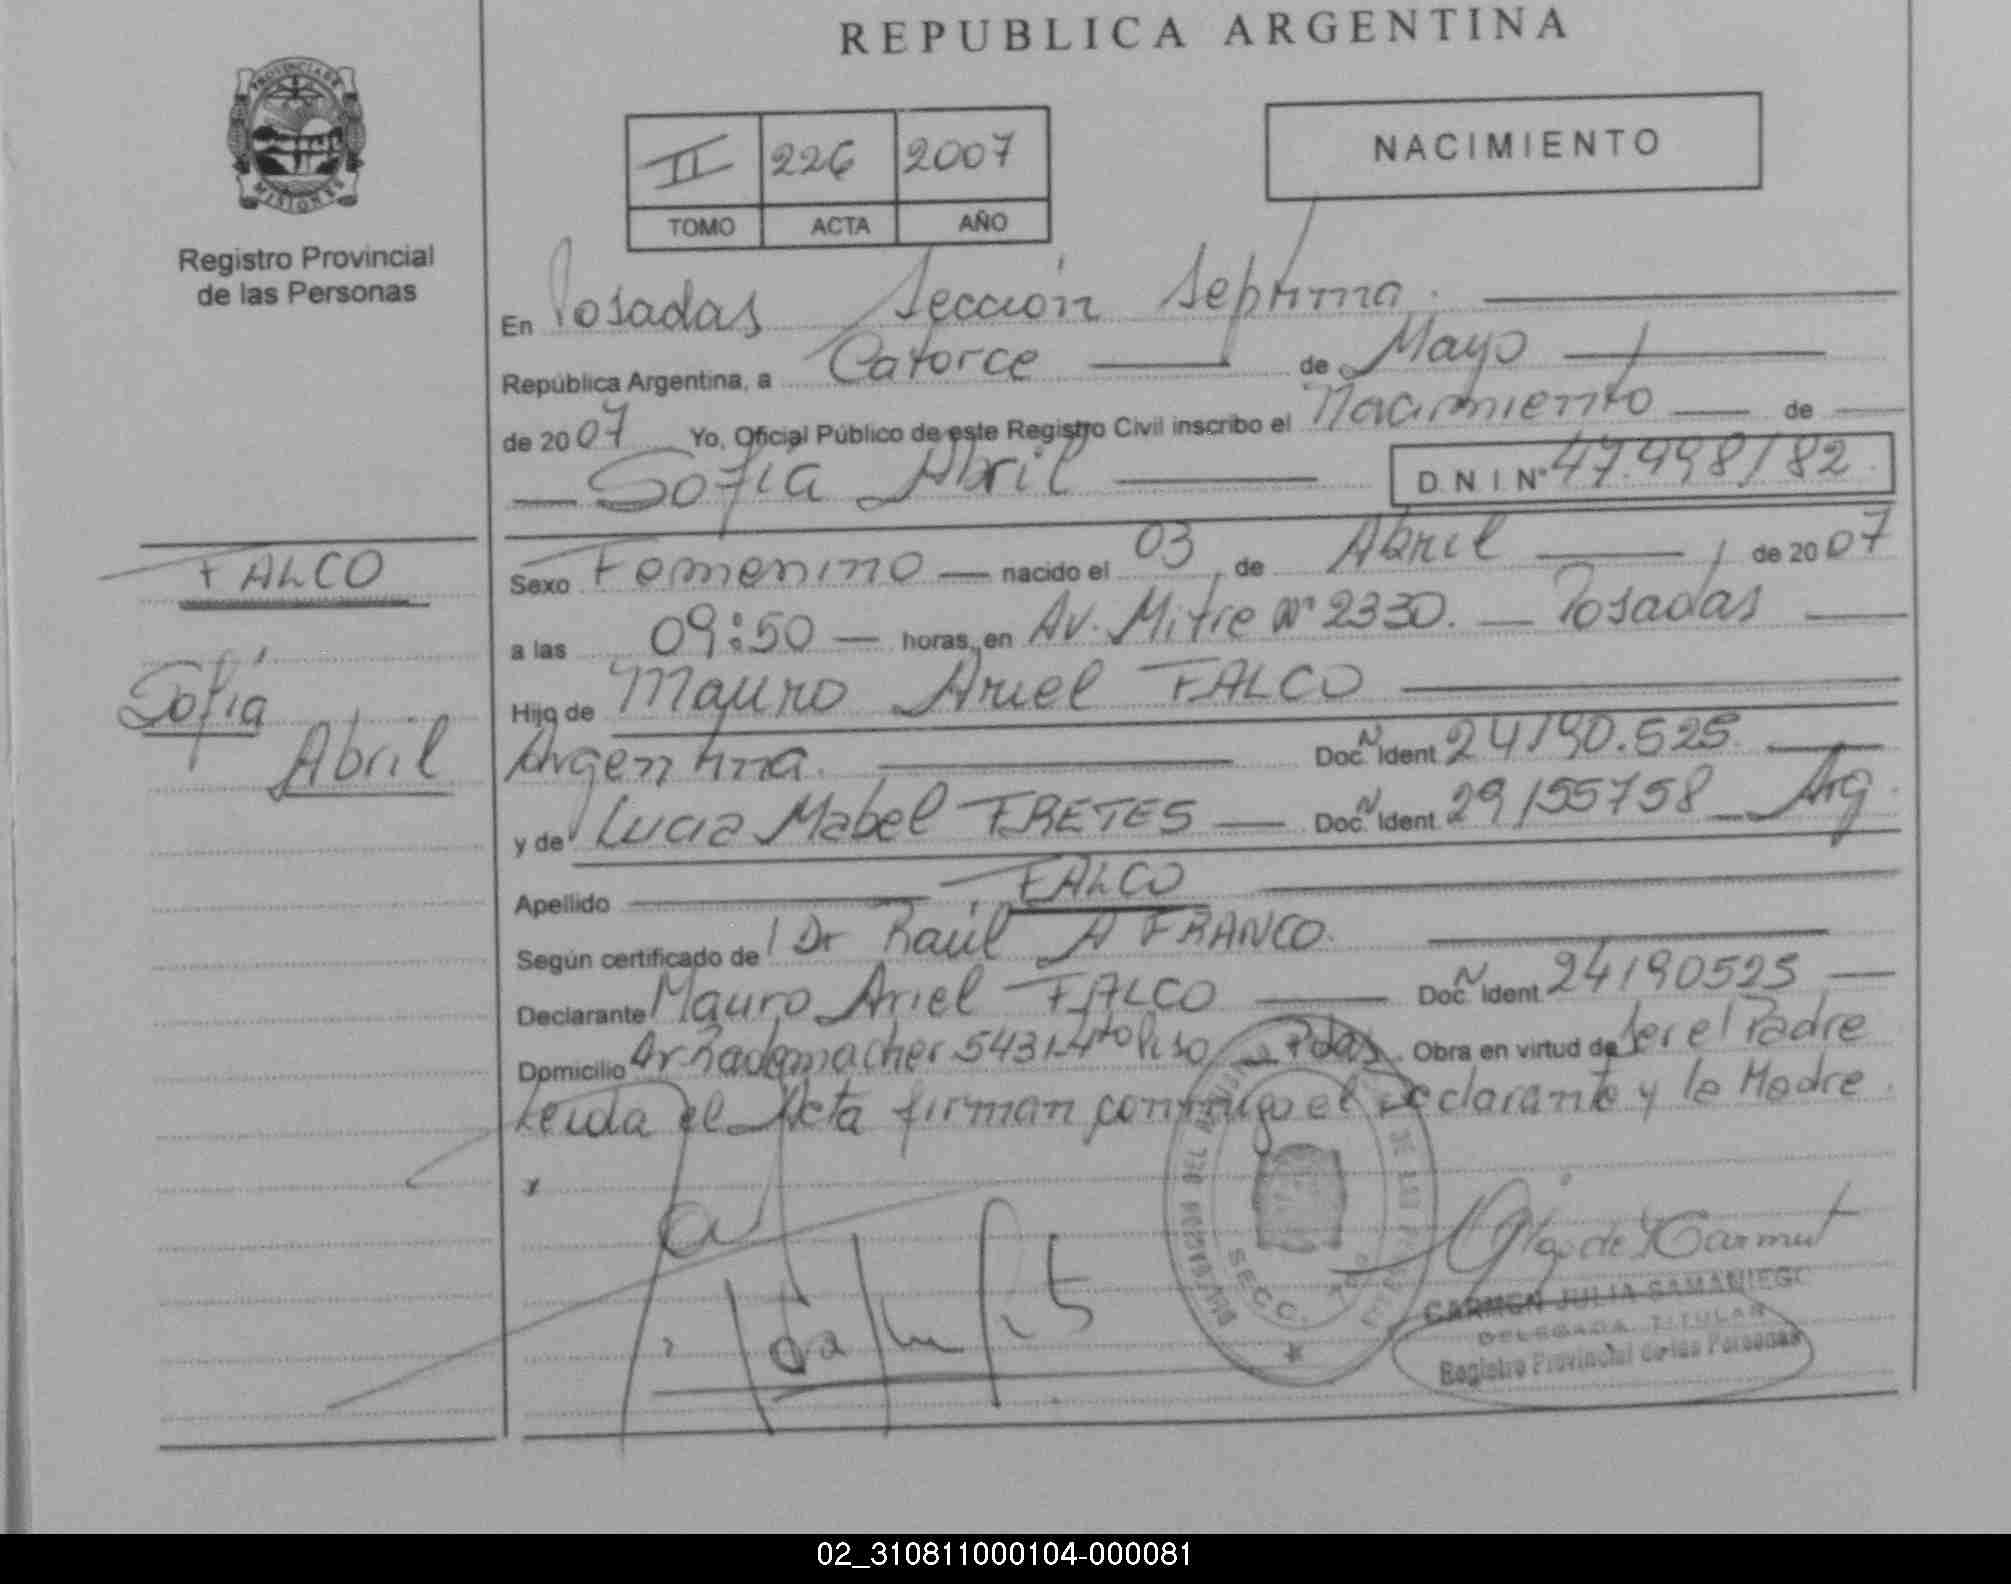 REPUBLICA ARGENTINA
PROVINCIA DE
MISIONES
Registro Provincial
de las Personas
II 226 2007
TOMO ACTA AÑO
NACIMIENTO
En Posadas Sección Septima.
República Argentina, a Catorce de Mayo
de 2007 Yo, Oficial Público de este Registro Civil inscribo el Nacimiento de
Sofía Abril D N I Nº 47.998182
FALCO
Sofía
Abril
Sexo Femenino nacido el 03 de Abril de 2007
a las 09:50 horas, en Av. Mitre Nº 2330. Posadas
Hijo de Mauro Ariel FALCO
Argentina. Doc. Nº Ident 24190.525
y de Lucia Mabel FRETES Doc. Nº Ident 29155758 Arg.
Apellido FALCO
Según certificado de Dr Raúl A FRANCO.
Declarante Mauro Ariel FALCO Doc. Nº Ident 24190525
Domicilio Av Rademacher 5431-4to Piso Pdas. Obra en virtud de Ser el Padre
Leida el Acta firman conmigo el declarante y la Madre.
SECC.
CARMEN JULIA SAMANIEGO
DELEGADA TITULAR
Registro Provincial de las Personas
02_310811000104-000081